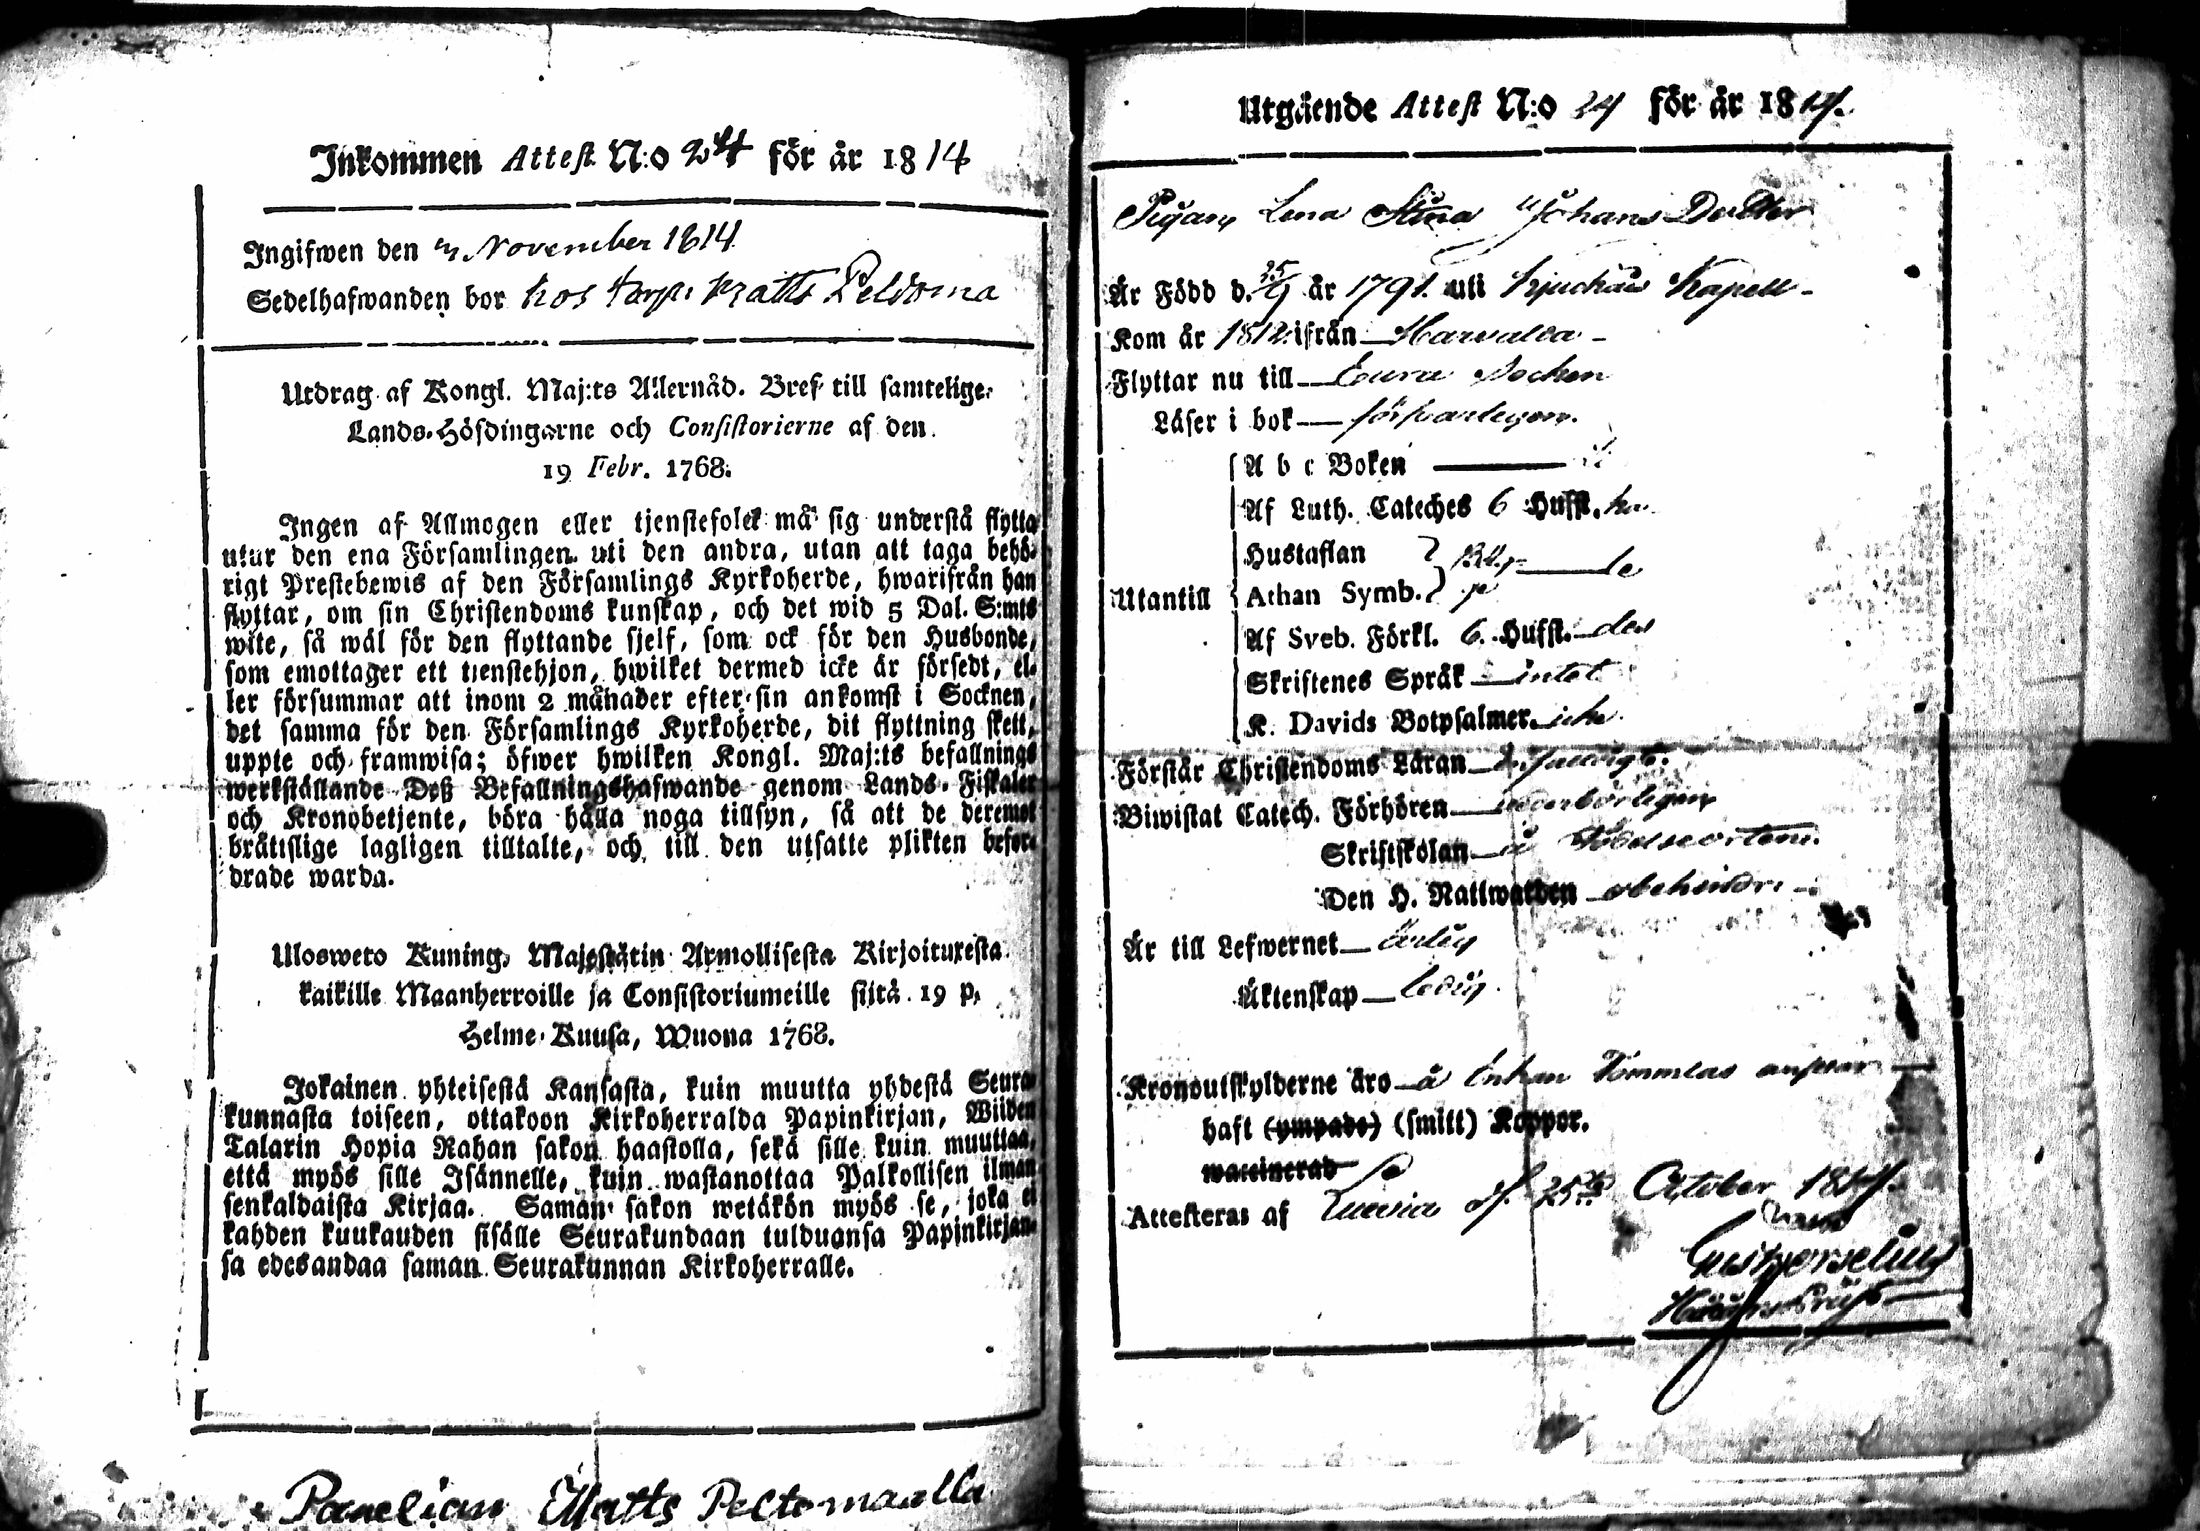 Inkommen Attest N:o 24 för år 1814
Ingifwen den November 1814
Sedelhafwanden bor hos torp. Matts Peldoma
Utdrag af Kongl. Maj:ts Allernåd. Bref till samtelige
Lands-Höfdingarne och Consistorierne af den
19 Febr. 1768.
Ingen af Allmogen eller tjenstefolck må sig understå flytta
utur den ena Församlingen uti den andra, utan att taga behö-
rigt Prestebewis af den Församlings Kyrkoherde, hwarifrån han
flyttar, om sin Christendoms kunskap, och det wid 5 Dal. S:mts
wite, så wäl för den flyttande sjelf, som ock för den Husbonde,
som emottager ett tjenstehjon, hwilket dermed icke är försedt, el-
ler försummar att inom 2 månader efter sin ankomst i Socknen,
det samma för den Församlings Kyrkoherde, dit flyttning skett,
uppte och framwisa; öfwer hwilken Kongl. Maj:ts befallnings
werkställande Deß Befallningshafwande genom Lands-Fiskaler
och Kronobetjente, böra hålla noga tillsyn, så att de deremot
bråttslige lagligen tilltalte, och till den utsatte plikten befor-
drade warda.
Ulosweto Kuning. Majestätin Armollisesta Kirjoituxesta
kaikille Maanherroille ja Consistoriumeille siitä 19 p.
Helme-Kuusa, Wuona 1768.
Jokainen yhteisestä Kansasta, kuin muutta yhdestä Seura-
kunnasta toiseen, ottakoon Kirkoherralda Papinkirjan, Wiiden
Talarin Hopia Rahan sakon haastolla, sekä sille kuin muuttaa,
että myös sille Isännelle, kuin wastanottaa Palkollisen ilman
senkaldaista Kirjaa. Saman sakon wetäkön myös se, joka ei
kahden kuukauden sisälle Seurakundaan tulduansa Papinkirjan-
sa edesandaa saman Seurakunnan Kirkoherralle.
Panelian Matts Peltomaalla
Utgående Attest N:o 24 för år 1814.
Pigan Lena Stina Johans Dotter
Är Född d. 25/9 år 1791. uti Kjuckais Kapell
Kom år 1812 ifrån Harvalda
Flyttar nu till Eura Socken
Läser i bok försvarligen.
A b c Boken
Af Luth. Cateches 6 Hufst.
Hustaflan
Utantill Athan Symb.
Af Sveb. Förkl. 6. Hufst.
Skriftenes Språk intet
K. Davids Botpsalmer icke
Förstår Christendoms Läran enfaldigt.
Biwistat Catech. Förhören wederbörligen
Skriftskolan å Födelseorten.
Den H. Nattwarden obehindr.
Är till Lefwernet ärlig
Äktenskap ledig
Kronoutskylderne äro å
haft (ympade) (smitt) Koppor.
waccinerad
Attesteras af Luvia d. 25 October 1814.